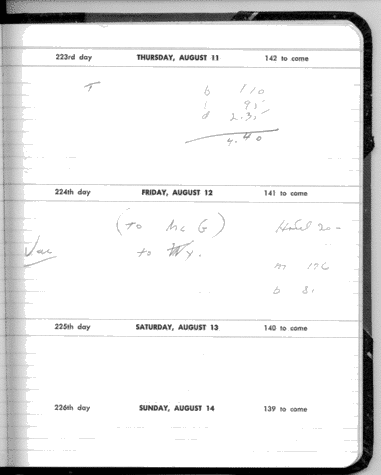 223rd day THURSDAY, AUGUST 11 142 to come
T b 110
l 95
d 2.35
4.40
224th day FRIDAY, AUGUST 12 141 to come
(to Mc G) Hotel 20-
Vac to Wy.
m 176
b 8.
225th day SATURDAY, AUGUST 13 140 to come
226th day SUNDAY, AUGUST 14 139 to come